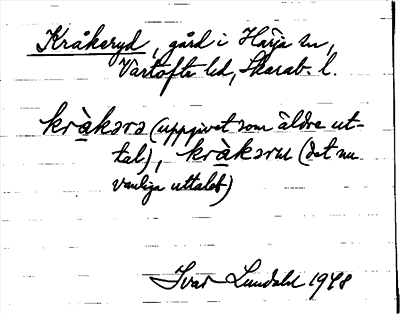 Kråkeryd, gård i Härja sn,
Vartofta hd, Skarab. l.
kràkərə (uppgivet som äldre ut-
tal), kràkərɯ (det nu
vanliga uttalet)
Ivar Lundahl 1948